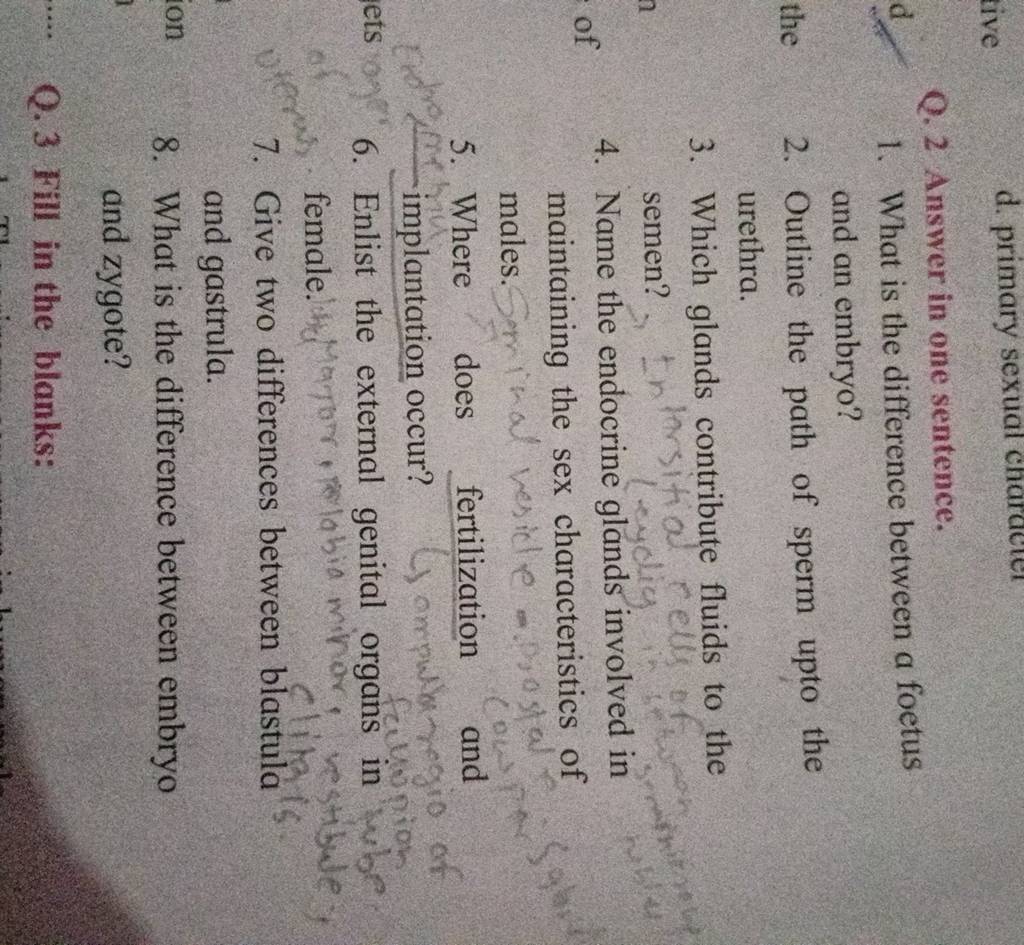 d. primary sexual character
Q. 2 Answer in one sentence.
1. What is the difference between a foetus
and an embryo?
2. Outline the path of sperm upto the
urethra.
3. Which glands contribute fluids to the
semen? Intersitial cells of
leydig in
4. Name the endocrine glands involved in
maintaining the sex characteristics of
males. Seminal vesicle
5. Where does fertilization and
implantation occur? of
fallopian tube.
6. Enlist the external genital organs in
female. labia minora, vestibule,
7. Give two differences between blastula
and gastrula.
8. What is the difference between embryo
and zygote?
Q. 3 Fill in the blanks:
tive
d
the
n
of
gets
of
uterus.
ion